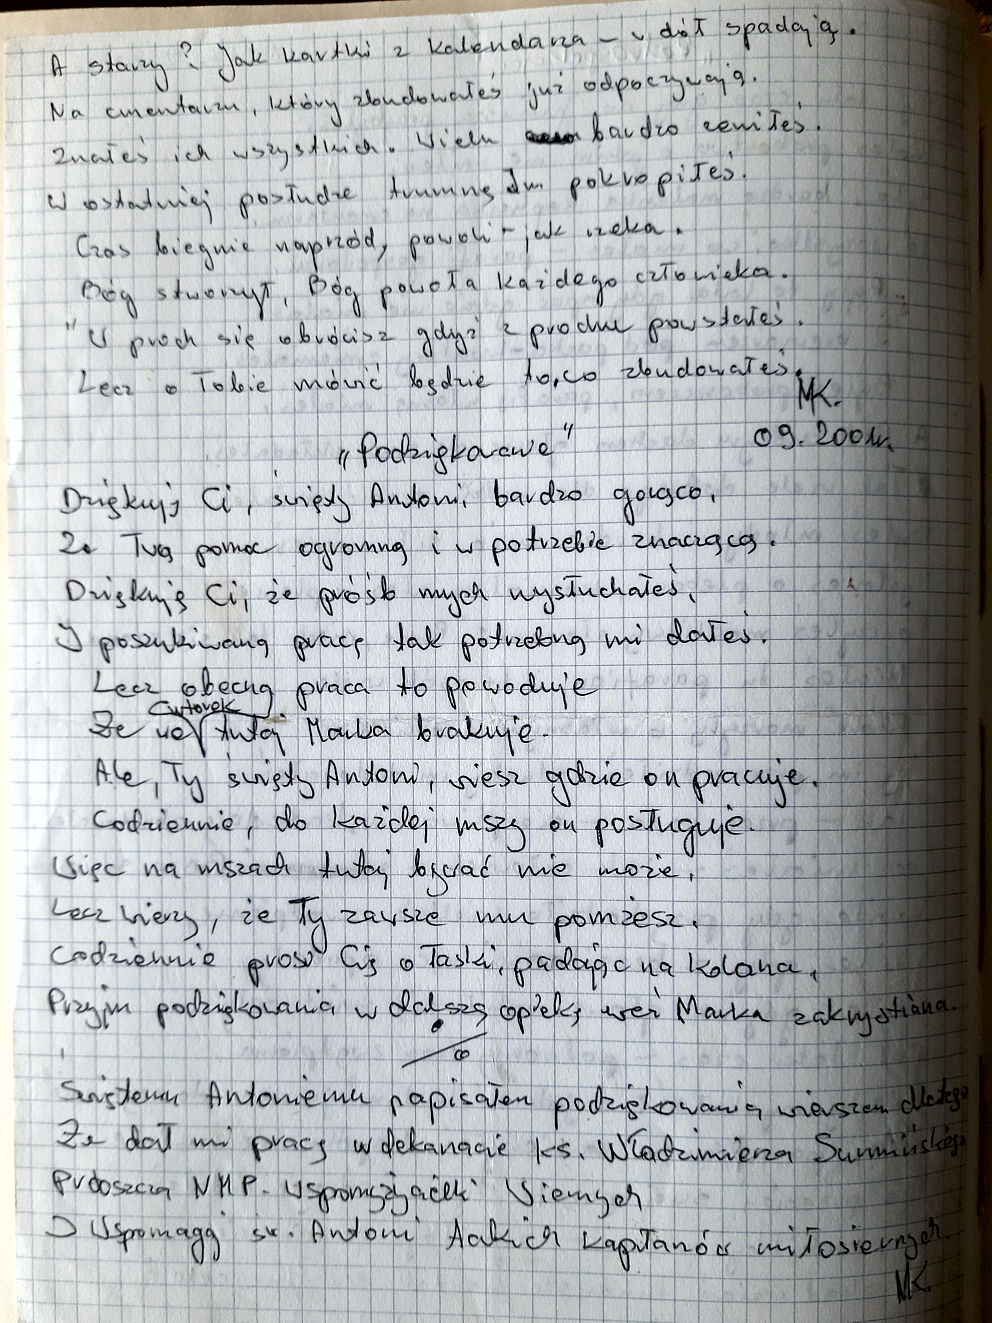 A starzy? Jak kartki z kalendarza – w dół spadają.
Na cmentarzu, który zbudowałeś już odpoczywają.
Znałeś ich wszystkich. Wielu bardzo ceniłeś.
W ostatniej posłudze trumnę Im pokropiłeś.
Czas biegnie naprzód, powoli – jak rzeka.
Bóg stworzył, Bóg powoła każdego człowieka.
"W proch się obrócisz gdyż z prochu powstałeś.
Lecz o Tobie mówić będzie to, co zbudowałeś.
MK.
09.2001r.
„Podziękowanie"
Dziękuję Ci, święty Antoni, bardzo gorąco,
Za Twą pomoc ogromną i w potrzebie znaczącą.
Dziękuję Ci, że próśb mych wysłuchałeś,
I poszukiwaną pracę tak potrzebną mi dałeś.
Lecz obecną praca to powoduje
Że we wtorek tutaj Marka brakuje.
Ale, Ty święty Antoni, wiesz gdzie on pracuje.
Codziennie, do każdej mszy on posługuje.
Więc na mszach tutaj bywać nie może,
Lecz wierzy, że Ty zawsze mu pomożesz.
Codziennie prosi Cię o łaski, padając na kolana,
Przyjm podziękowania w dalszą opiekę weź Marka zakrystiana.
Świętemu Antoniemu napisałem podziękowania wierszem dlatego
Że dał mi pracę w dekanacie ks. Włodzimierza
proboszcza NMP. Wspomożycielki Wiernych
I Wspomaga św. Antoni takich kapłanów miłosiernych.
MK